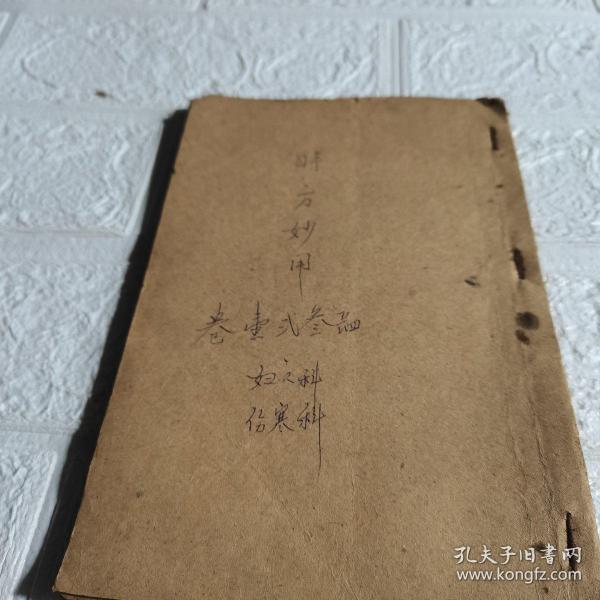 时方妙用
卷壹弍叁四
妇人科
伤寒科
孔夫子旧書网
www.kongfz.com